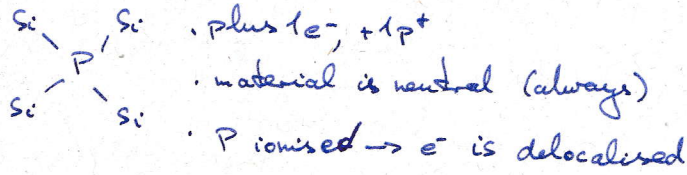 Si Si · plus 1e⁻, +1p⁺
P
· material is neutral (always)
Si Si
· P ionised → e⁻ is delocalised